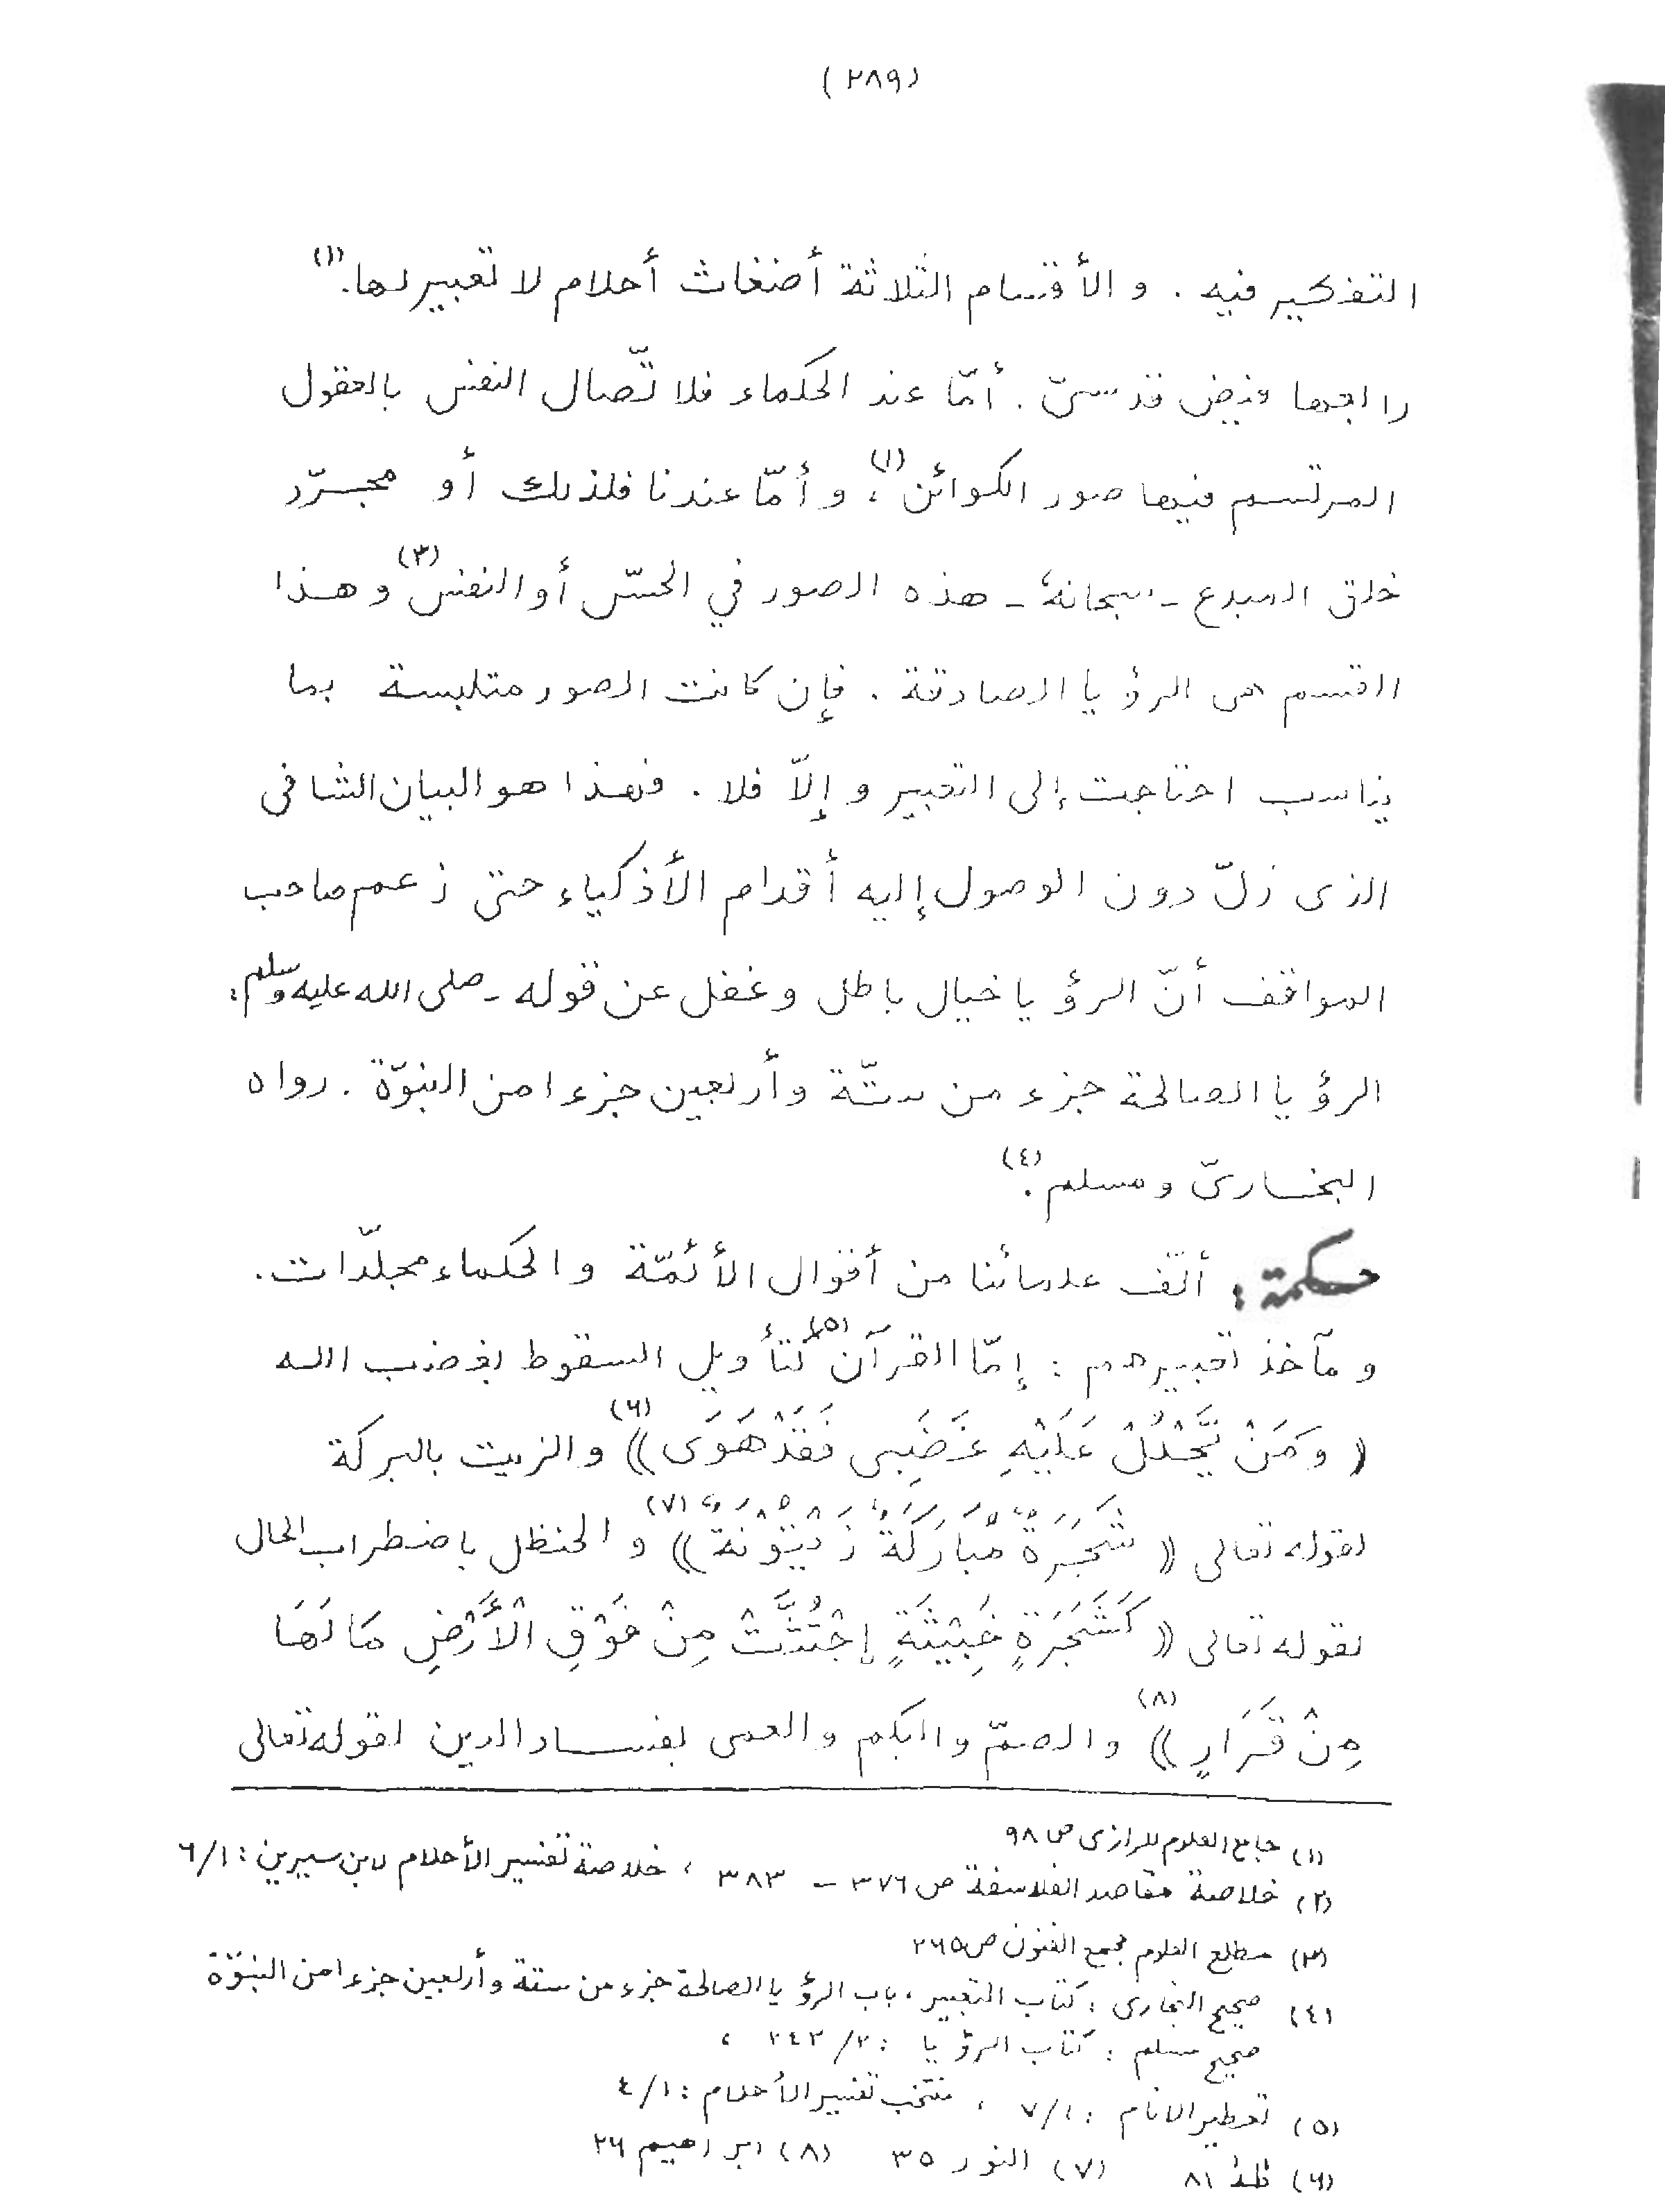 (٢٨٩)
التفكير فيه . و الأقسام الثلاثة أضغاث أحلام لا تعبير لها.(١)
رابعها فيض قدسىّ . أمّا عند الحكماء فلا تّصال النفس بالعقول
المرتسم فيها صور الكوائن(١)، و أمّا عندنا فلذلك أو مجرّد
خلق المبدع - سبحانهٗ - هذه الصور في الحسّ أو النفس(٣) و هذا
القسم هى الرؤيا الصادقة . فإن كانت الصور متلبسة بما
يناسب احتاجت إلى التعبير و إلاّ فلا . فهذا هو البيان الشافى
الذى زلّ دون الوصول إليه أقدام الأذكياء حتى زعم صاحب
المواقف أنّ الرؤيا خيال باطل و غفل عن قوله - صلى الله عليه وسلم :
الرؤيا الصالحة جزء من ستّة و أربعين جزءا من النبوّة . رواه
البخارىّ و مسلم .(٤)
حكمة : ألّف علمائنا من أقوال الأئمّة و الحكماء مجلّدات .
و مآخذ تعبيرهم : إمّا القرآن(٥) كتأويل السقوط بغضب الله
( وَمَنْ يَّحْلُلْ عَلَيْهِ غَضَبِى فَقَدْ هَوَى ))(٦) و الزيت بالبركة
لقوله تعالى (( شَجَرَةٍ مُّبَارَكَةٍ زَيْتُوْنَةٍ ))(٧) و الحنظل باضطراب الحال
لقوله تعالى (( كَشَجَرَةٍ خَبِيْثَةٍ إجْتُثَّتْ مِنْ فَوْقِ الْأَرْضِ مَا لَهَا
مِنْ قَرَارٍ ))(٨) و الصمّ و البكم و العمى بفساد الدين لقوله تعالى
(١) جامع العلوم للرازى ص ٩٨
(٢) خلاصة مقاصد الفلاسفة ص ٣٧٦ - ٣٨٣ ، خلاصة تفسير الأحلام لابن سيرين : ٦/١
(٣) مطلع العلوم مجمع الفنون ص ٢٦٥
(٤) صحيح البخارى : كتاب التعبير ، باب الرؤيا الصالحة جزء من ستة و أربعين جزءا من النبوّة
صحيح مسلم : كتاب الرؤيا : ٢٤٢/٢ ،
(٥) تعطير الانام : ٧/١ ، منتخب تفسير الأحلام : ٤/١
(٦) طٰهٰ ٨١ (٧) النور ٣٥ (٨) ابراهيم ٢٦